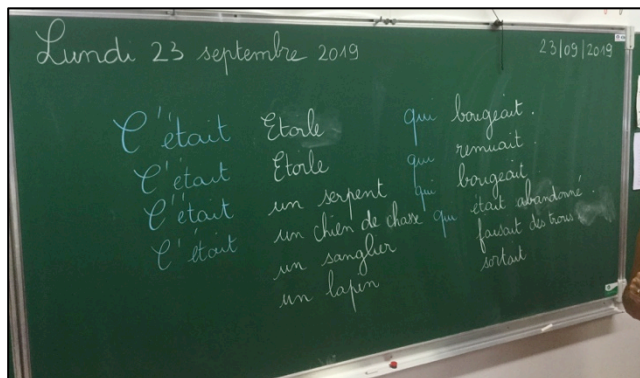 Lundi 23 septembre 2019 23/09/2019
C'était Etoile qui bougeait.
C'était Etoile qui remuait.
C'était un serpent qui bougeait
C'était un chien de chasse qui était abandonné.
un sanglier faisait des trous
un lapin sortait